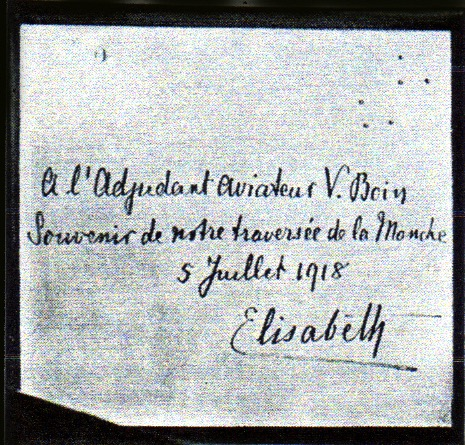 A l'Adjudant Aviateur V. Boin
Souvenir de notre traversée de la Manche
5 Juillet 1918
Elisabeth